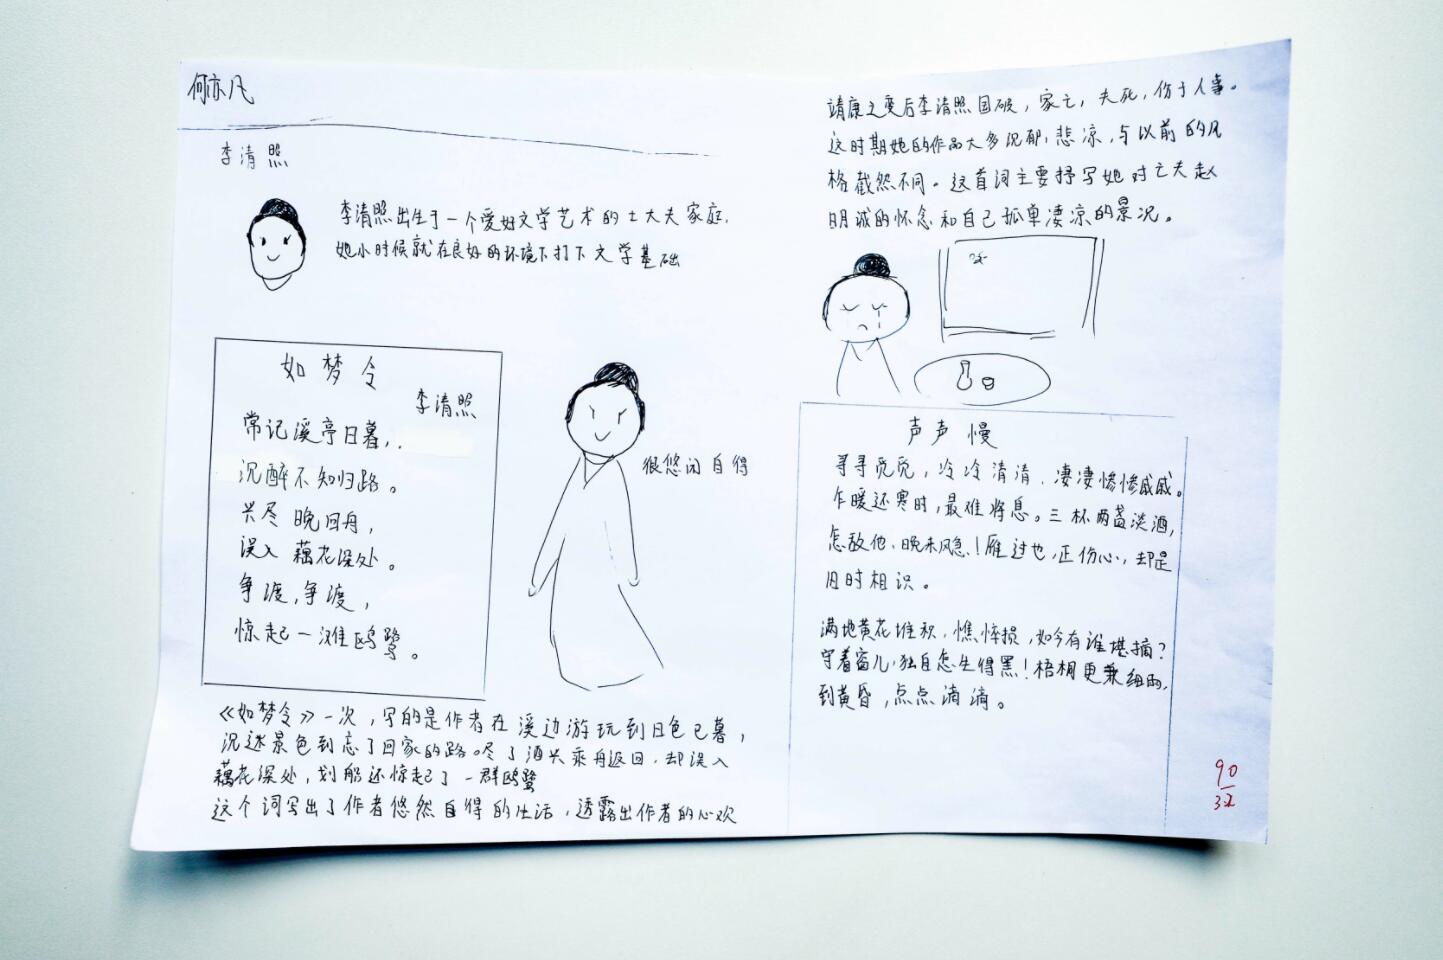 何亦凡
李清照
李清照出生于一个爱好文学艺术的士大夫家庭.
她小时候就在良好的环境下打下文学基础
如梦令
李清照
常记溪亭日暮，
沉醉不知归路。
兴尽晚回舟，
误入藕花深处。
争渡，争渡，
惊起一滩鸥鹭。
很悠闲自得
《如梦令》一次，写的是作者在溪边游玩到日色已暮，
沉迷景色到忘了回家的路。尽了酒兴乘舟返回，却误入
藕花深处，划船还惊起了一群鸥鹭
这个词写出了作者悠然自得的生活，透露出作者的心欢
靖康之变后李清照国破，家亡，夫死，伤于人事。
这时期她的作品大多沉郁，悲凉，与以前的风
格截然不同。这首词主要抒写她对亡夫赵
明诚的怀念和自己孤单凄凉的景况。
声声慢
寻寻觅觅，冷冷清清，凄凄惨惨戚戚。
乍暖还寒时，最难将息。三杯两盏淡酒，
怎敌他，晚来风急！雁过也，正伤心，却是
旧时相识。
满地黄花堆积，憔悴损，如今有谁堪摘？
守着窗儿，独自怎生得黑！梧桐更兼细雨，
到黄昏，点点滴滴。
90